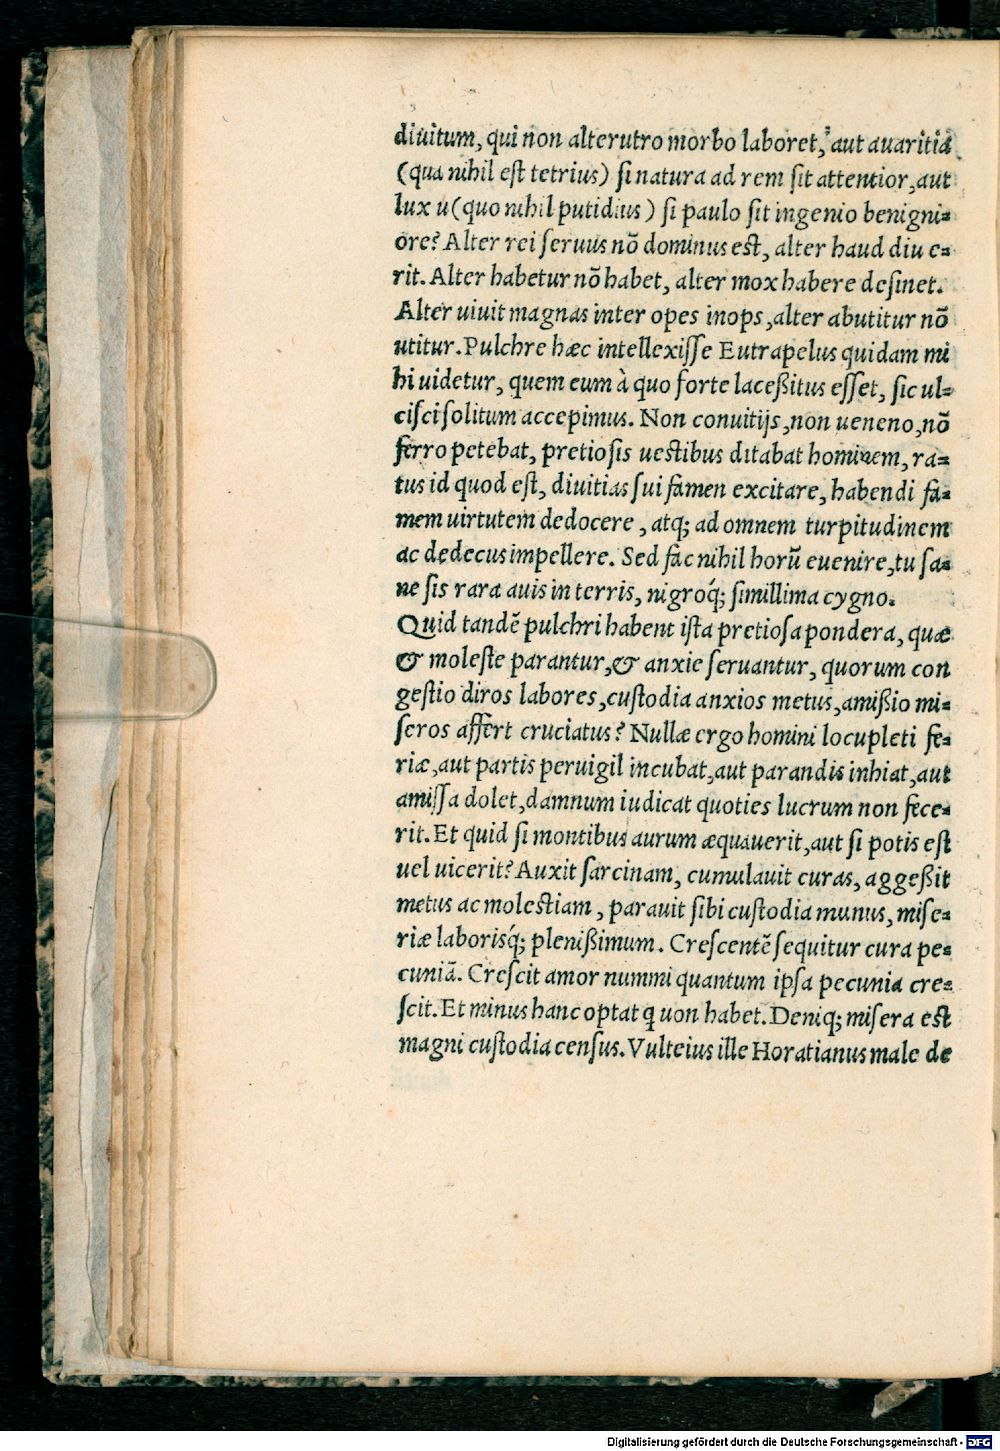 diuitum, qui non alterutro morbo laboret, aut auaritia
(qua nihil est tetrius) si natura ad rem sit attentior, aut
lux u (quo nihil putidius) si paulo sit ingenio benigni=
ore? Alter rei seruus nō dominus est, alter haud diu e=
rit. Alter habetur nō habet, alter mox habere desinet.
Alter uiuit magnas inter opes inops, alter abutitur nō
utitur. Pulchre hæc intellexisse Eutrapelus quidam mi
hi uidetur, quem eum à quo forte laceßitus esset, sic ul=
cisci solitum accepimus. Non conuitijs, non ueneno, nō
ferro petebat, pretiosis uestibus ditabat hominem, ra=
tus id quod est, diuitias sui famen excitare, habendi fa=
mem uirtutem dedocere, atq; ad omnem turpitudinem
ac dedecus impellere. Sed fac nihil horū euenire, tu sa=
ne sis rara auis in terris, nigroq́; simillima cygno.
Quid tandē pulchri habent ista pretiosa pondera, quæ
& moleste parantur, & anxie seruantur, quorum con
gestio diros labores, custodia anxios metus, amißio mi=
seros affert cruciatus? Nullæ ergo homini locupleti fe=
riæ, aut partis peruigil incubat, aut parandis inhiat, aut
amissa dolet, damnum iudicat quoties lucrum non fece=
rit. Et quid si montibus aurum æquauerit, aut si potis est
uel uicerit? Auxit sarcinam, cumulauit curas, aggeßit
metus ac molestiam, parauit sibi custodia munus, mise=
riæ laborisq́; plenißimum. Crescentē sequitur cura pe=
cuniā. Crescit amor nummi quantum ipsa pecunia cre=
scit. Et minus hanc optat q uon habet. Deniq; misera est
magni custodia census. Vulteius ille Horatianus male de
Digitalisierung gefördert durch die Deutsche Forschungsgemeinschaft - DFG